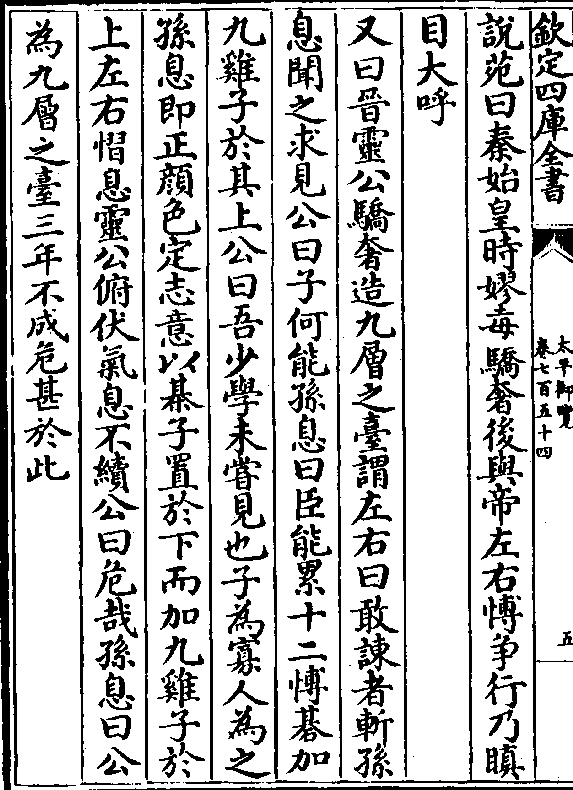 欽定四庫全書
太平御覽
卷七百五十四
五
說苑曰秦始皇時嫪毐驕奢後與帝左右愽争行乃瞋
目大呼
又曰晉靈公驕奢造九層之臺謂左右曰敢諫者斬孫
息聞之求見公曰子何能孫息曰臣能累十二愽碁加
九雞子於其上公曰吾少學未嘗見也子為寡人為之
孫息即正顔色定志意以棊子置於下而加九雞子於
上左右慴息靈公俯伏氣息不續公曰危哉孫息曰公
為九層之臺三年不成危甚於此